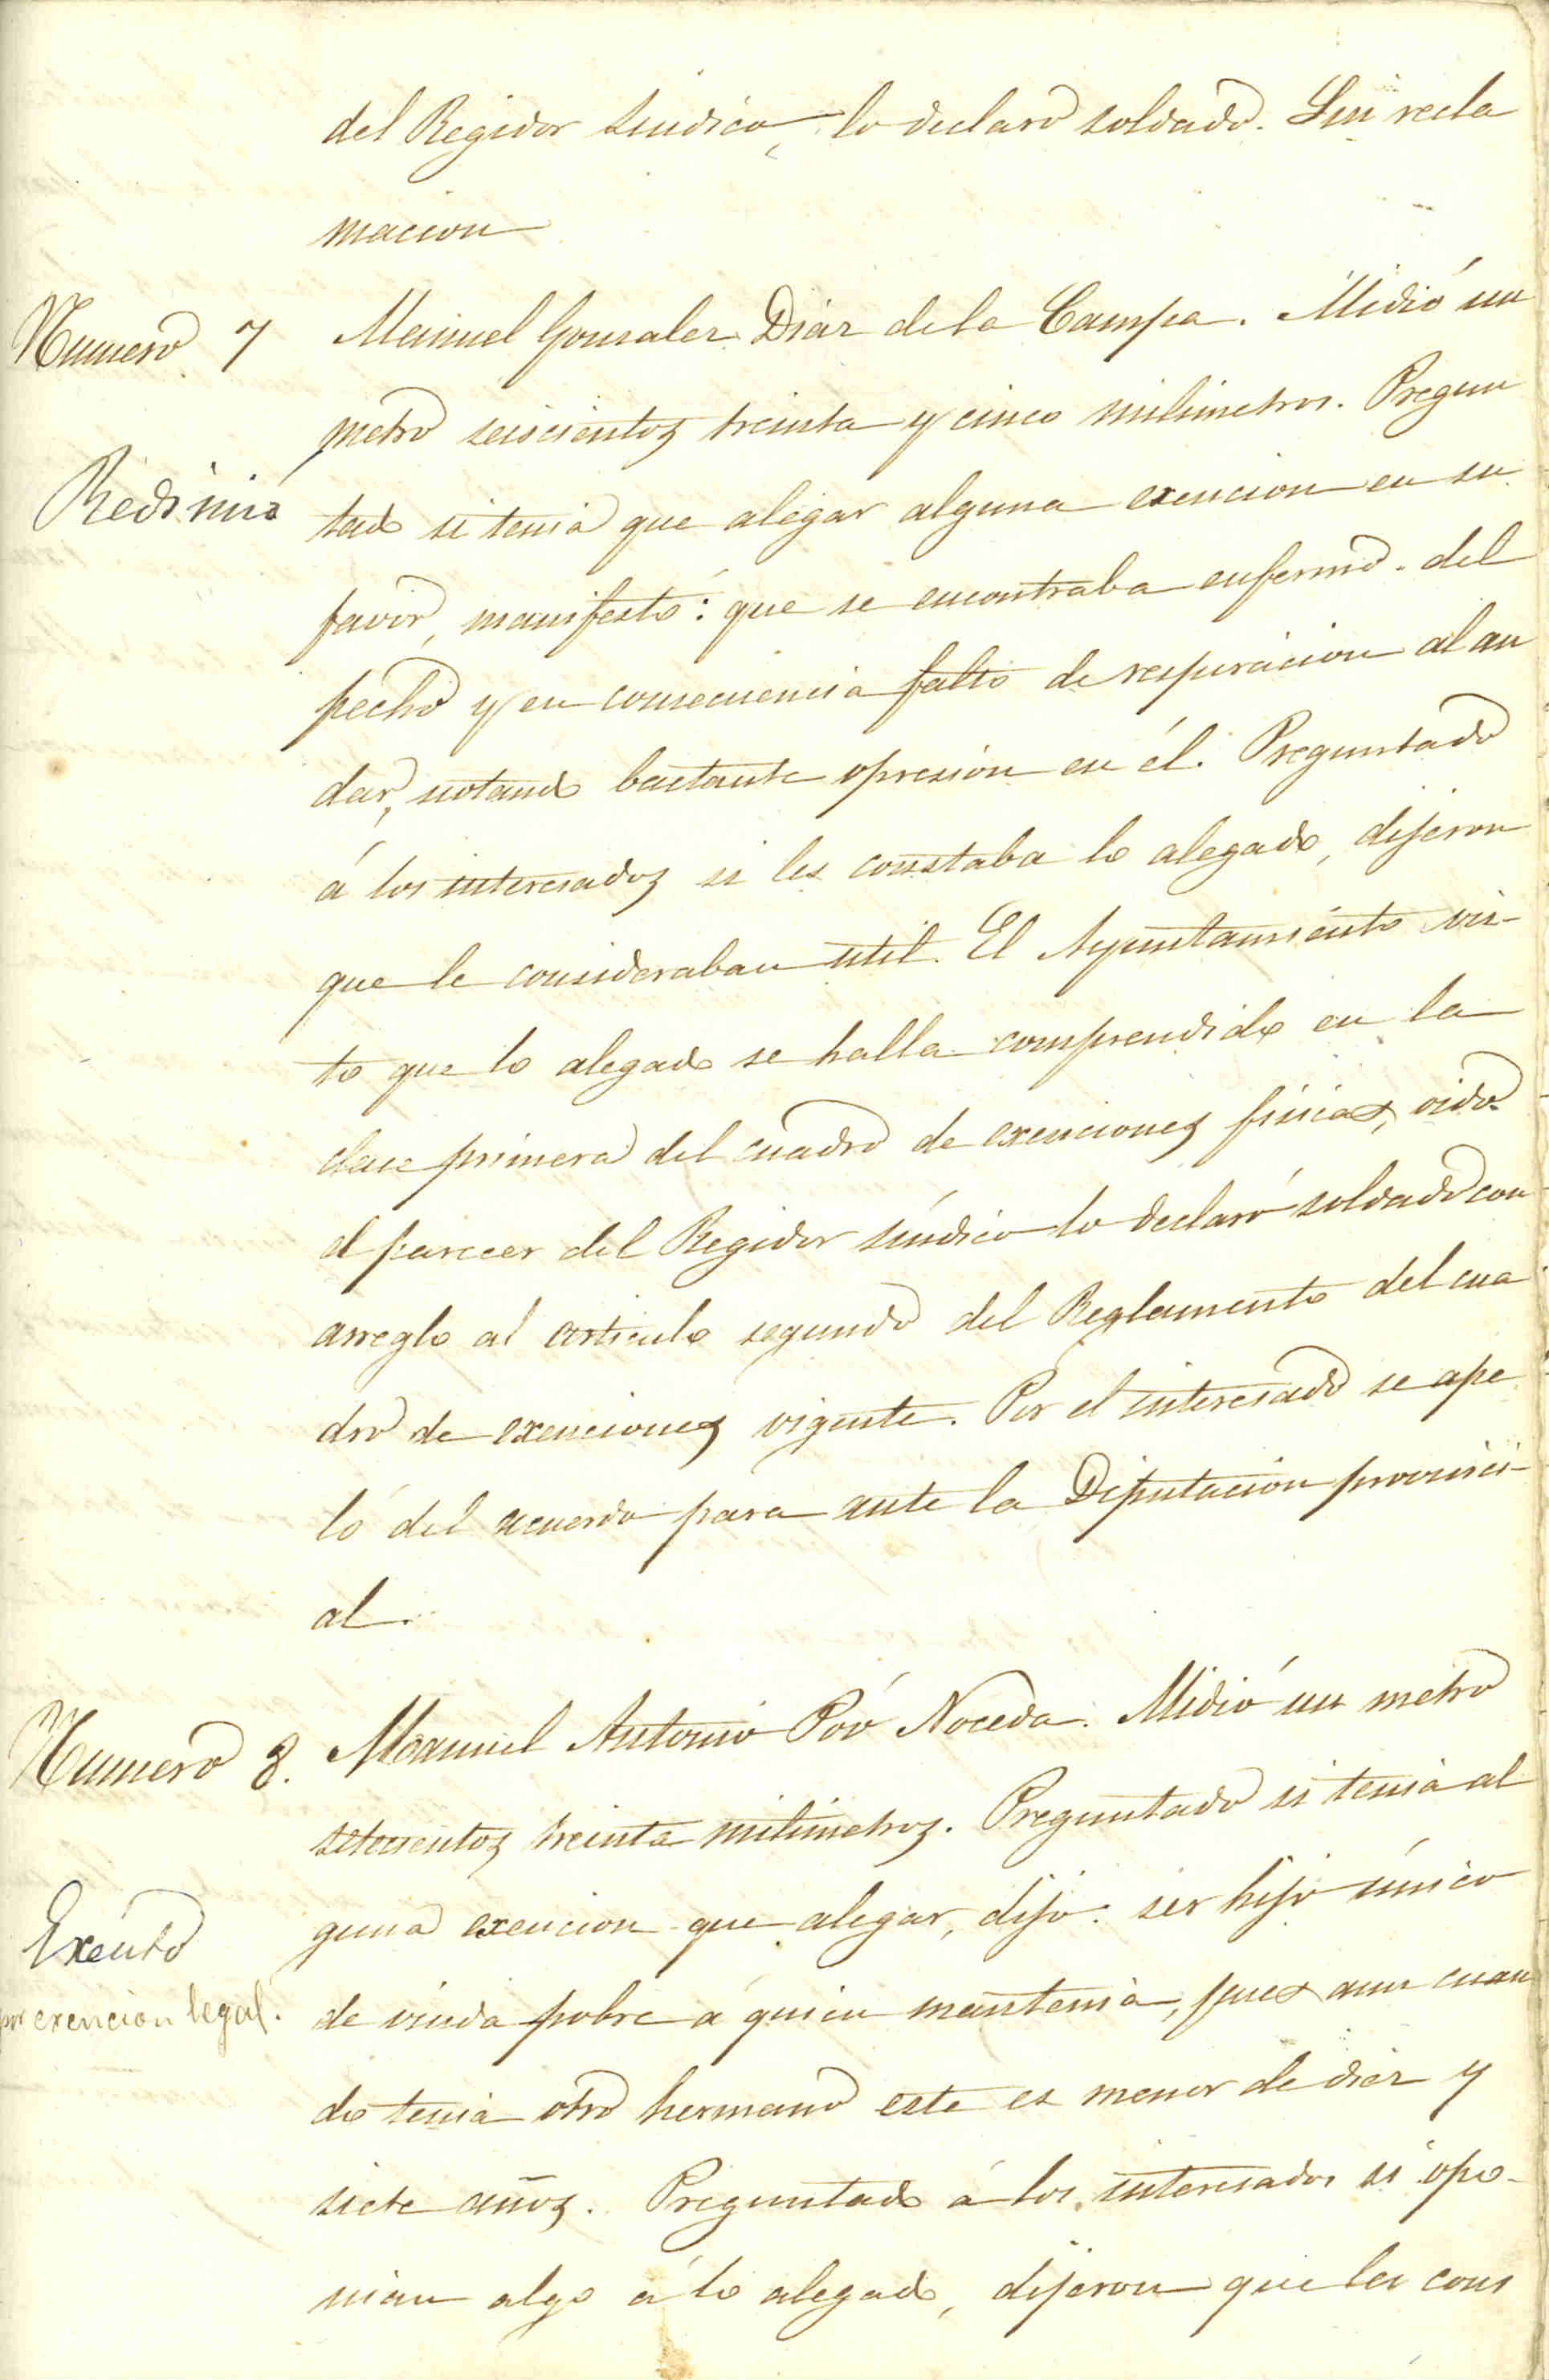 del Regidor Sindico, lo declaró soldado. Sin recla
macion
Numero 7 Manuel Gonzalez Diáz de la Campa. Midió un
metro seiscientos treinta y cinco milimetros. Pregun
Redimió
tado si tenia que alegar alguna exencion en su
favor, manifestó: que se encontraba enfermo del
pecho y en consecuencia falto de respiracion al an
dar, notando bastante opresion en él. Preguntado
á los interesados si les constaba lo alegado, dijeron
que le consideraban util. El Ayuntamiento vis-
to que lo alegado se halla comprendido en la
clase primera del cuadro de exenciones fisicas, oido
el parecer del Regidor síndico lo declaró soldado con
arreglo al articulo segundo del Reglamento del cua
dro de exenciones vigente. Por el interesado se ape
ló del acuerdo para ante la Diputacion provinci-
al.
Numero 8. Manuel Antonio Póo Noceda. Midió un metro
setecientos treinta milimetros. Preguntado si tenia al
guna exencion que alegar, dijo: ser hijo único
Exento
por exencion legal.
de viuda pobre a quien mantenia, pues aun cuan
do tenia otro hermano este es menor de diez y
siete años. Preguntado á los interesados si opo-
nian algo á lo alegado, dijeron que les cons